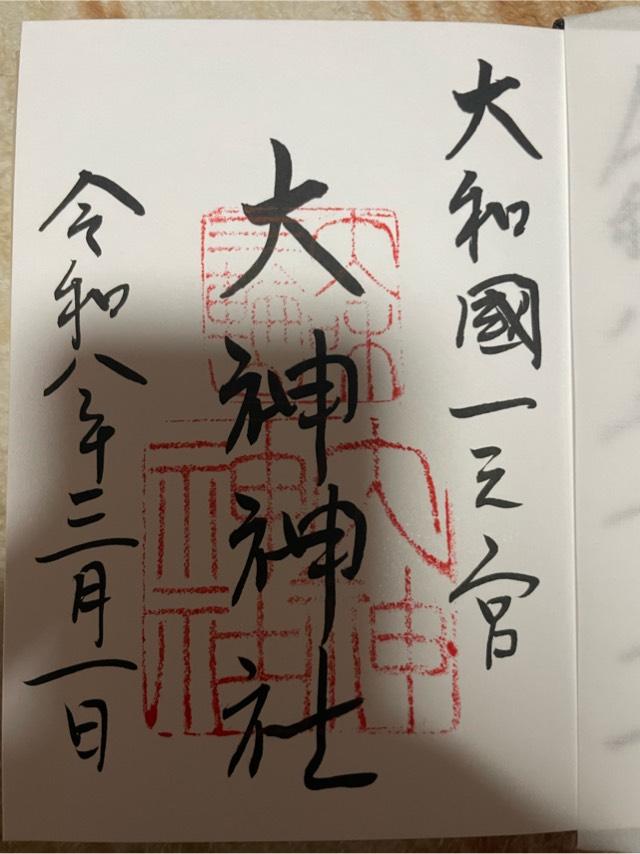 大和國一之宮
大神神社
令和八年三月一日
大神神社